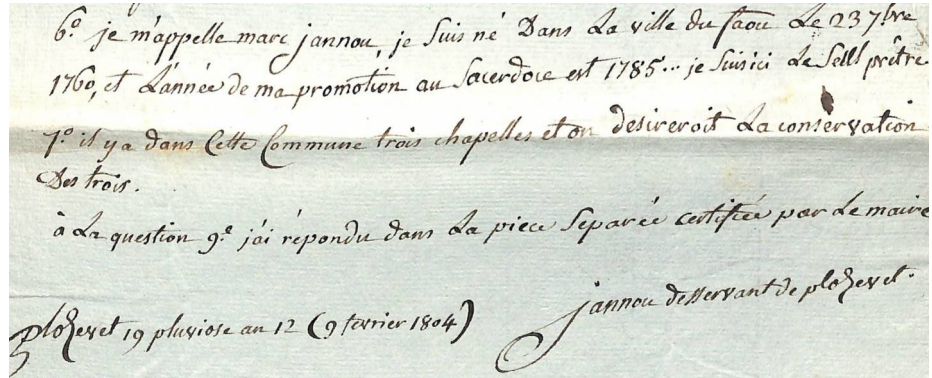 6º. je m'appelle marc jannou, je suis né Dans La ville du faou Le 23 7bre
1760, et L'année de ma promotion au Sacerdoce est 1785... je suis ici Le Seul prêtre
7º. il y a dans Cette Commune trois chapelles et on desireroit La conservation
Des trois.
à La question 9e. j'ai répondu dans La piece Separée certifiée par Le maire
plozevet 19 pluviose an 12 (9 fevrier 1804)
jannou desservant de plozevet.